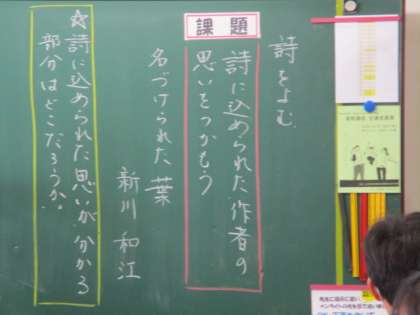 詩をよむ
課題
詩に込められた作者の
思いをつかもう
名づけられた葉
新川 和江
☆詩に込められた思いが分かる
部分はどこだろうか。